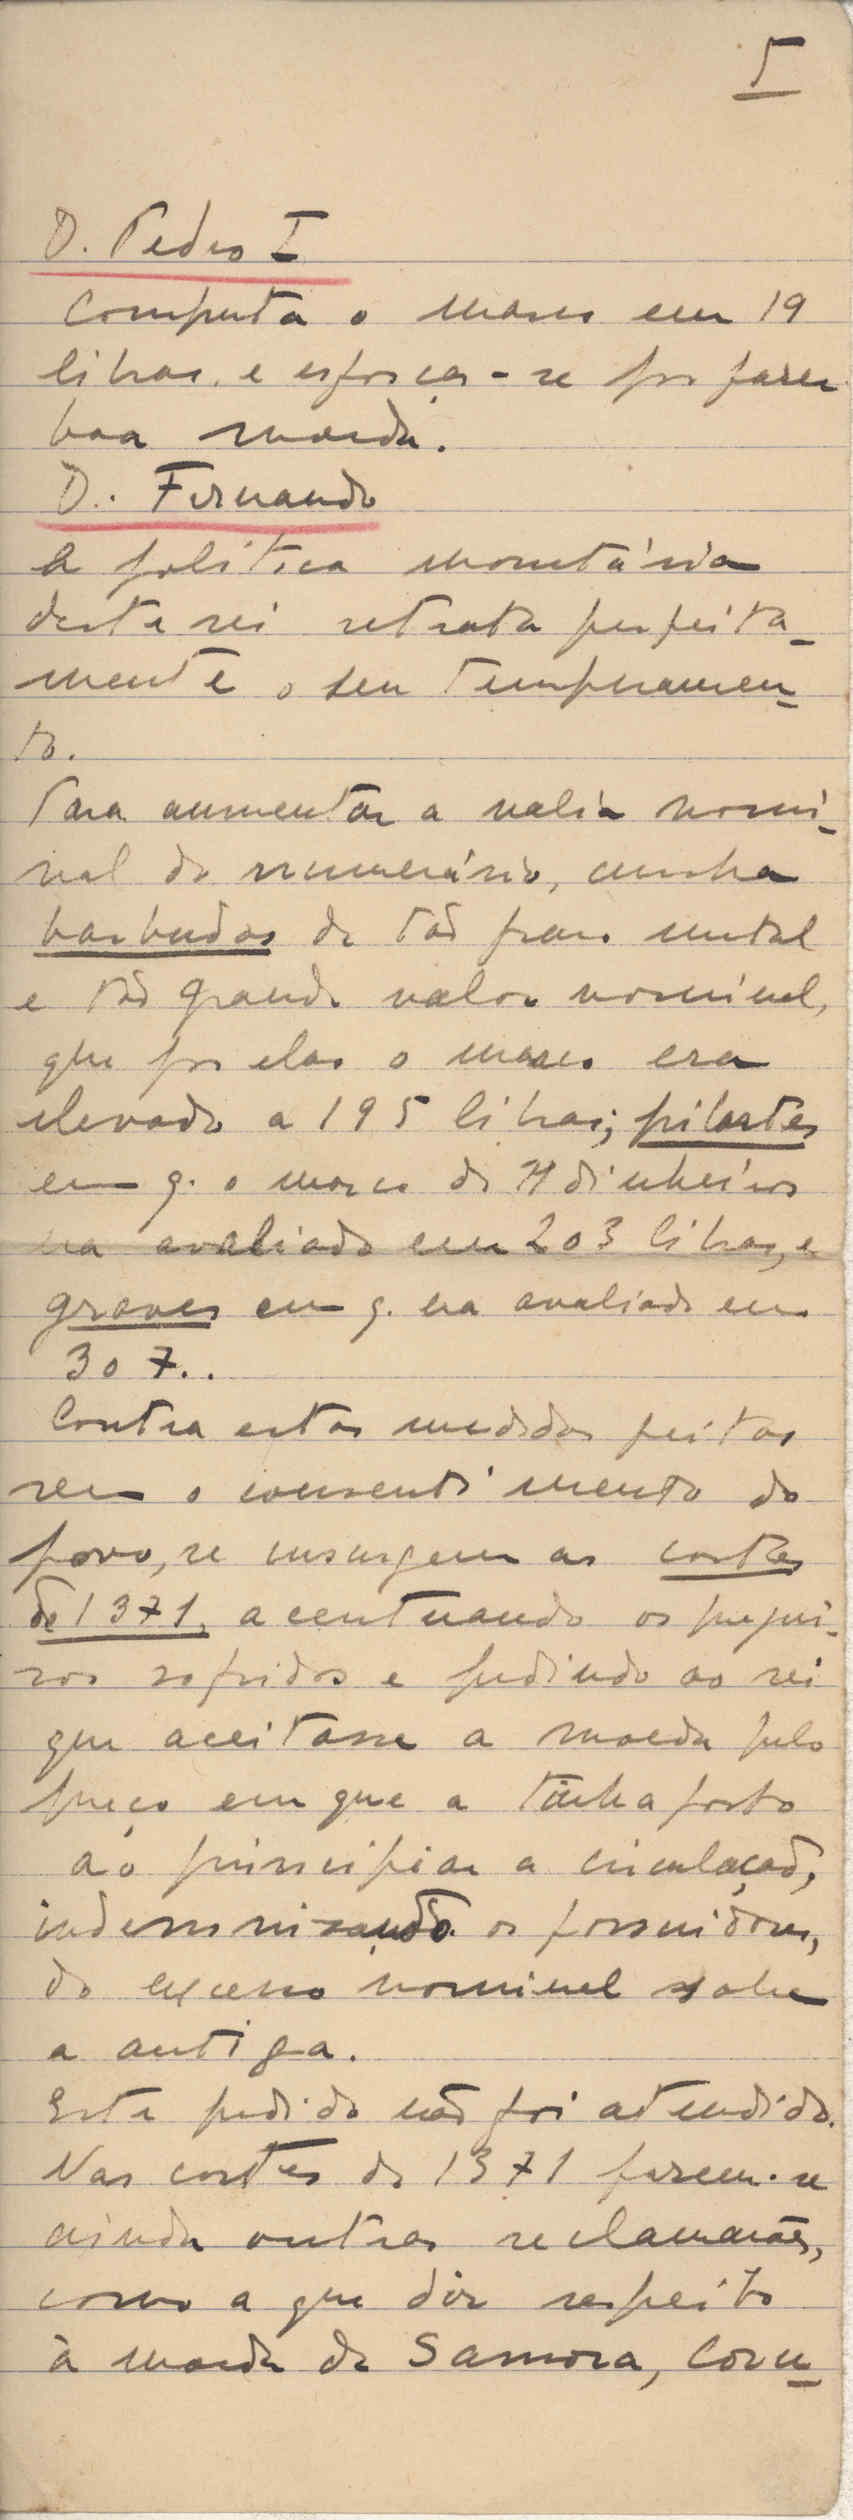 5
D. Pedro I
Computa o marco em 19
libras, e esforça-se por fazer
boa moeda.
D. Fernando
A politica monetária
deste rei retrata perfeita-
mente o seu temperamen-
to.
Para aumentar a valia nomi-
nal do numerário, cunha
barbudas de tão fraco metal
e tão grande valor nominal,
que por elas o marco era
elevado a 195 libras; pilartes
em q. o marco de dinheiros
era avaliado em 203 libras, e
graves em q. era avaliado em
307..
Contra estas medidas feitas
sem o consentimento do
povo, se insurgem as cortes
de 1371, acentuando os prejui-
zos sofridos e pedindo ao rei
que aceitasse a moeda pelo
preço em que a tinha posto
ao principiar a circulação,
indemnizando os possuidores,
do excesso nominal sobre
a antiga.
Este pedido não foi atendido.
Nas cortes de 1371 fazem-se
ainda outras reclamações,
como a que diz respeito
à moeda de Samora, Coru-